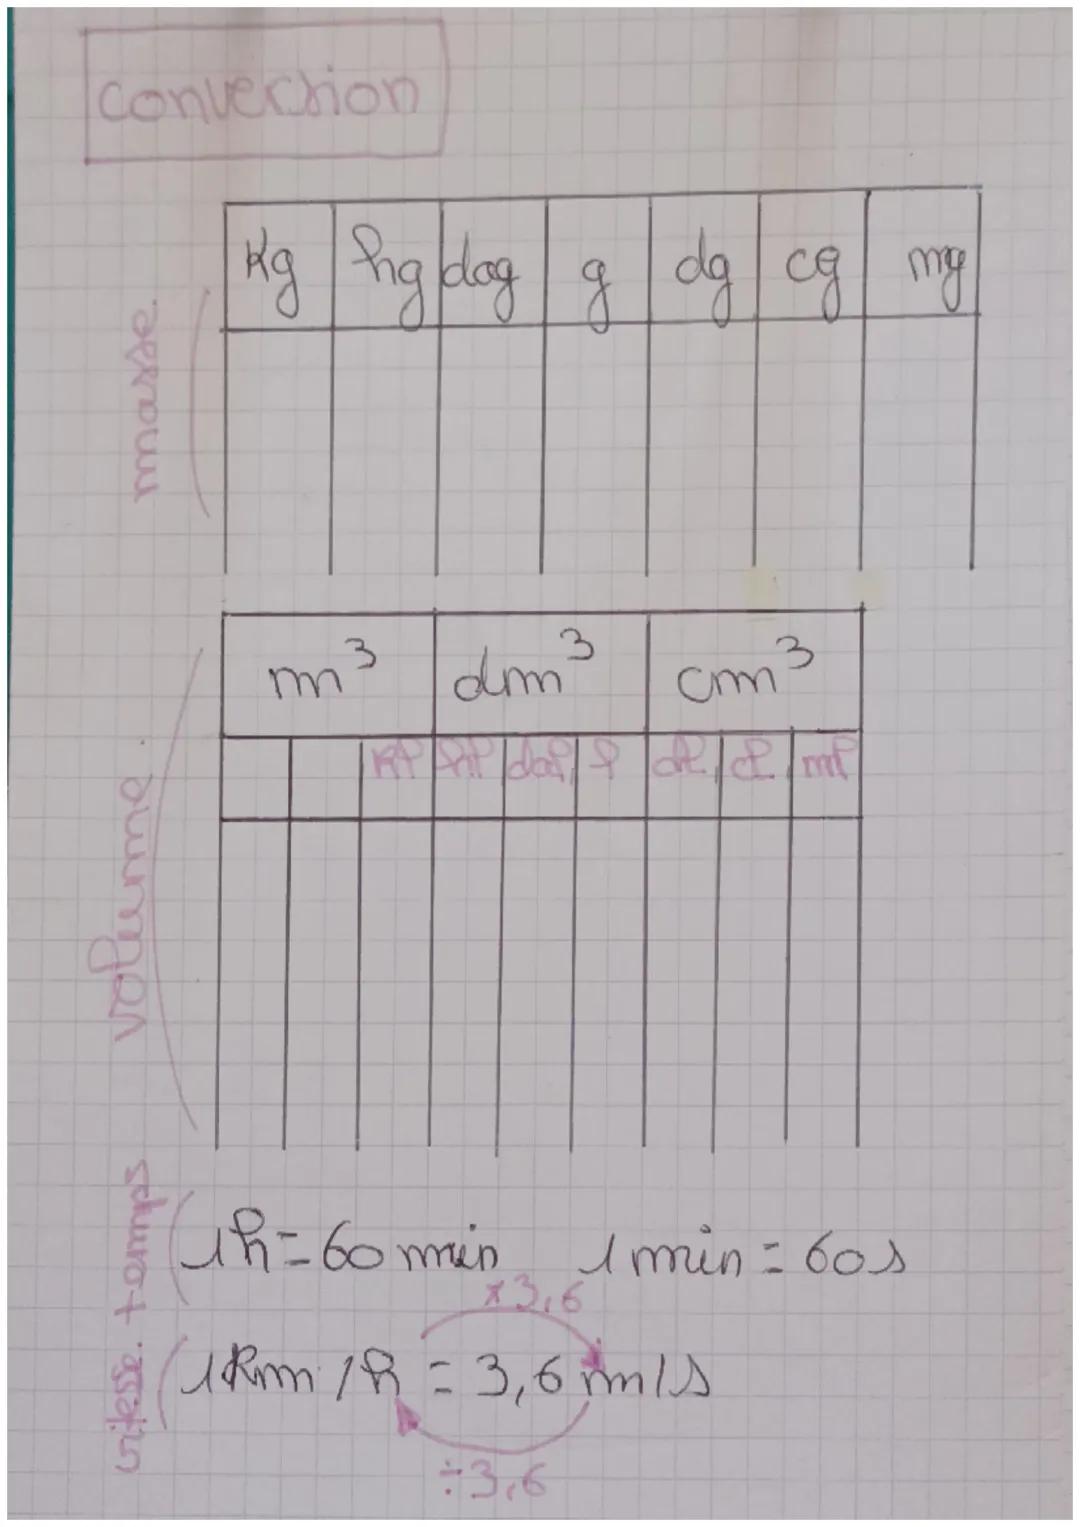 conversion
masse
Kg hg dag g dg cg mg
volume
m³ dm³ cm³
Kl hl dal l dl cl ml
temps
1h = 60 min 1 min = 60s
vitesse
×3,6
1 Km/h = 3,6 m/s
÷3,6